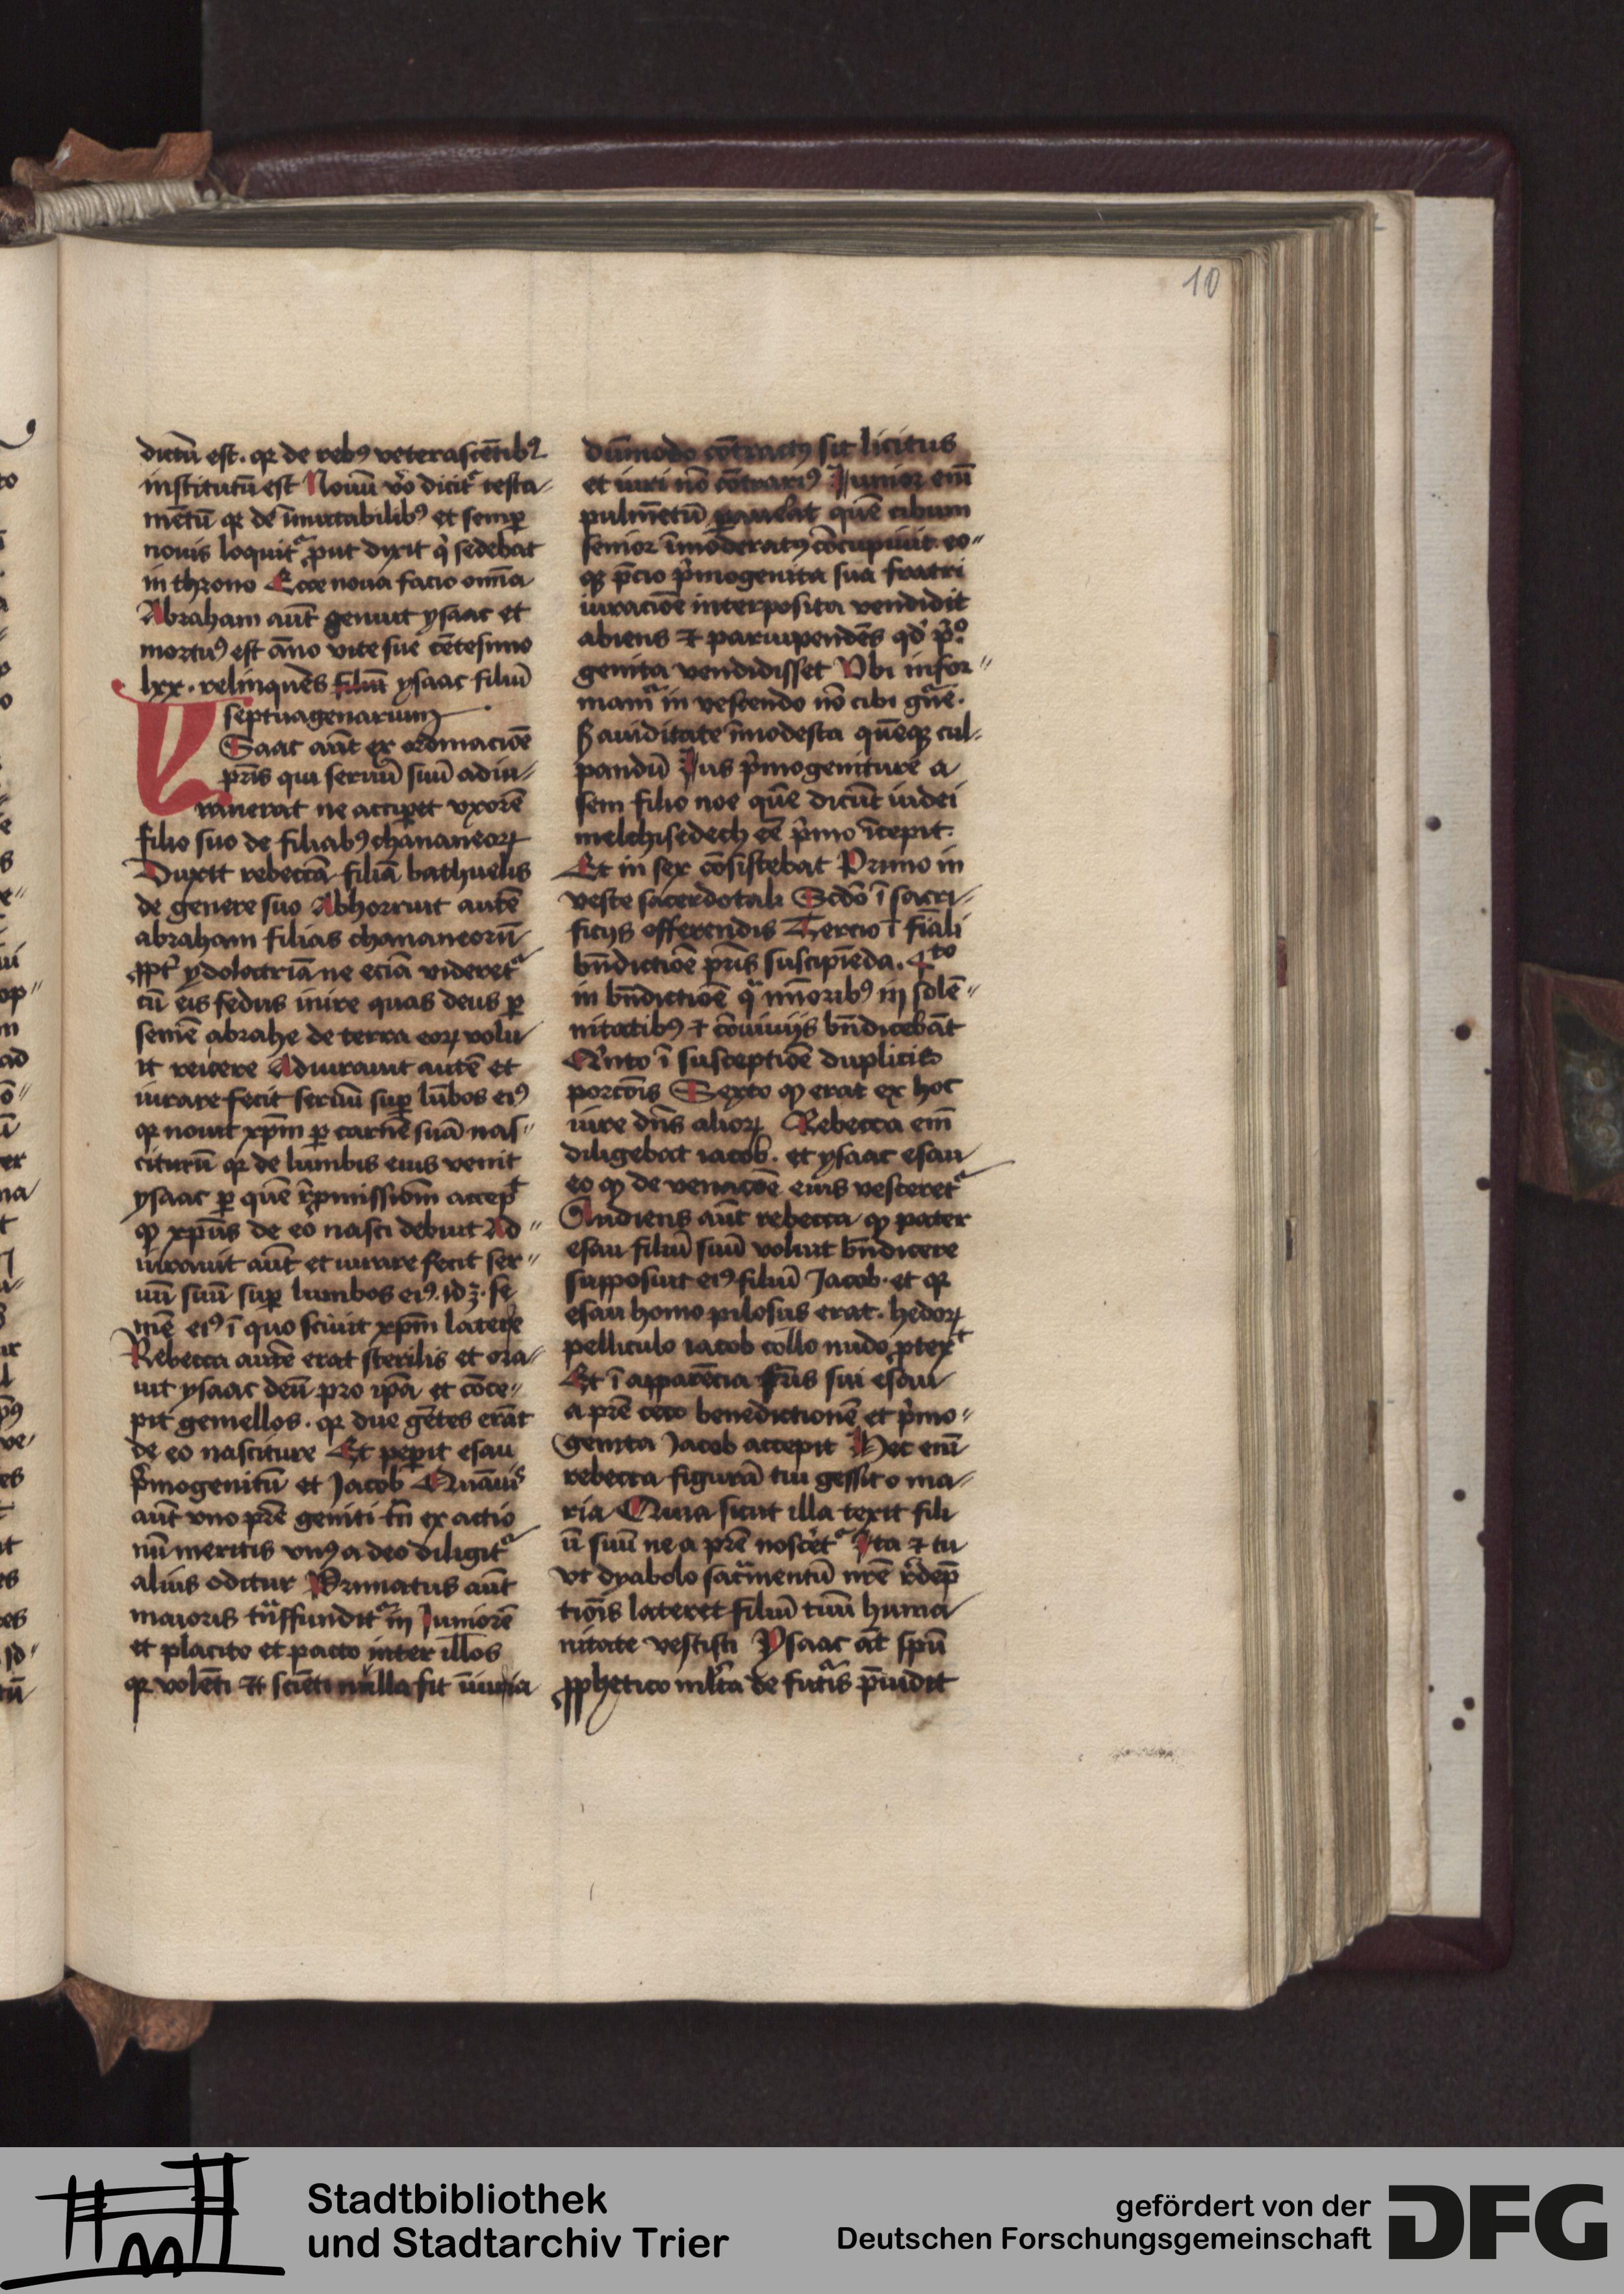 10
dictū est. qr de rebꝰ veterascētibꝰ
institutū est Nouū vo dicit᷑ testa-
mētū qr de īmutabilibꝰ et semꝑ
nouis loquit᷑ ꝓut dixit q̇ sedebat
in throno Ecce noua facio om̄a
Abraham aūt genuit ysaac et
mortuꝰ est āno vite sue cētesimo
lxx. relinquēs filiū ysaac filiū
septuagenarium
Ysaac aūt ex ordinacōe
pr̄is qui seruū suū adiu-
rauerat ne acciꝑet vxorē
filio suo de filiabꝰ chananeoꝝ
Duxit rebeccā filiā bathuelis
de genere suo Abhorruit autē
abraham filias chananeorū
ꝓpt᷑ ydolatriā ne eciā videret᷑
cū eis fedus inire quas deus ꝑ
semē abrahe de terra eoꝝ volu
it reicere Adiurauit autē et
iurare fecit seruū suꝑ lūbos eiꝰ
qr nouit xp̄m ꝑ carnē suā nas-
citurū qr de lumbis eius venit
ysaac ꝑ quē rep̄missiōm accep᷑
ꝙ xp̄us de eo nasci debuit Ad-
iurauit aūt et iurare fecit ser-
uū suū suꝑ lumbos eiꝰ. idꝫ. se
mē eiꝰ ī quo sciuit xp̄m latere
Rebecca autē erat sterilis et ora-
uit ysaac deū pro ip̄a et cōce-
pit gemellos. qr due gētes erāt
de eo nasciture Et peꝑit esau
p̓mogenitū et Jacob Quāuis
aūt vno pr̄e geniti tn̄ ex actio
nū meritis vnꝰ a deo diligit᷑
alius oditur Primatus aūt
maioris tᷓnsfundit᷑ in Juniorē
et placito et pacto inter illos
qr volēti et sciēti nulla fit iniuria
dūmodo cōtractꝰ sit licitus
et iuri nō cōtrariꝰ Junior em̄
pulmētū ꝑauerat quē cibum
senior īmoderatꝰ cōcupiuit. eo-
qꝫ p̄cio p̓mogenita sua fratri
iuracōe interposita vendidit
abiens et paruipendēs qd̓ p̓o
genita vendidisset Vbi infor-
mam᷑ in vescendo nō cibi gn̄e.
sꝫ auiditate īmodesta quēqꝫ cul-
pandū Jus p̓mogeniture a
sem filio noe quē dicūt iudei
melchisedech ēē p̓mo īcepit.
Et in sex cōsistebat Primo in
veste sacerdotali Scdo ī sacri-
ficijs offerendis Tercio ī fīali
bn̄dictiōe pr̄is suscipiēda. 4to
in bn̄dictiōe qᷓ minoribꝰ in solē-
nitatibꝰ et cōuiuijs bn̄dicebāt
Qnto ī susceptiōe duplicis
porcōis Sexto ꝙ erat ex hoc
iure dn̄s alioꝝ Rebecca em̄
diligebat iacob. et ysaac esau
eo ꝙ de venacōe eius vesceret᷑
Audiens aūt rebecca ꝙ pater
esau filiū suū voluit bn̄dicere
supposuit eiꝰ filiū Jacob. et qr
esau homo pilosus erat. hedoꝝ
pelliculo iacob collo nudo ꝓtexᵗ
Et ī apparēcia fr̄is sui esau
a pr̄e ceco benedictionē et p̓mo-
genita Jacob accepit Hec em̄
rebecca figurā tui gessit o ma-
ria Quia sicut illa texit fili
ū suū ne a pr̄e nosc̓et᷑ Ita et tu
vt dyabolo sacᷓmentū nr̄e r̓dēp
tiōis lateret filiū tuū huma
nitate vestisti Ysaac āt spū
ꝓphetico ml̓ta de futᷓis p̄uidit
Stadtbibliothek
und Stadtarchiv Trier
gefördert von der
Deutschen Forschungsgemeinschaft
DFG